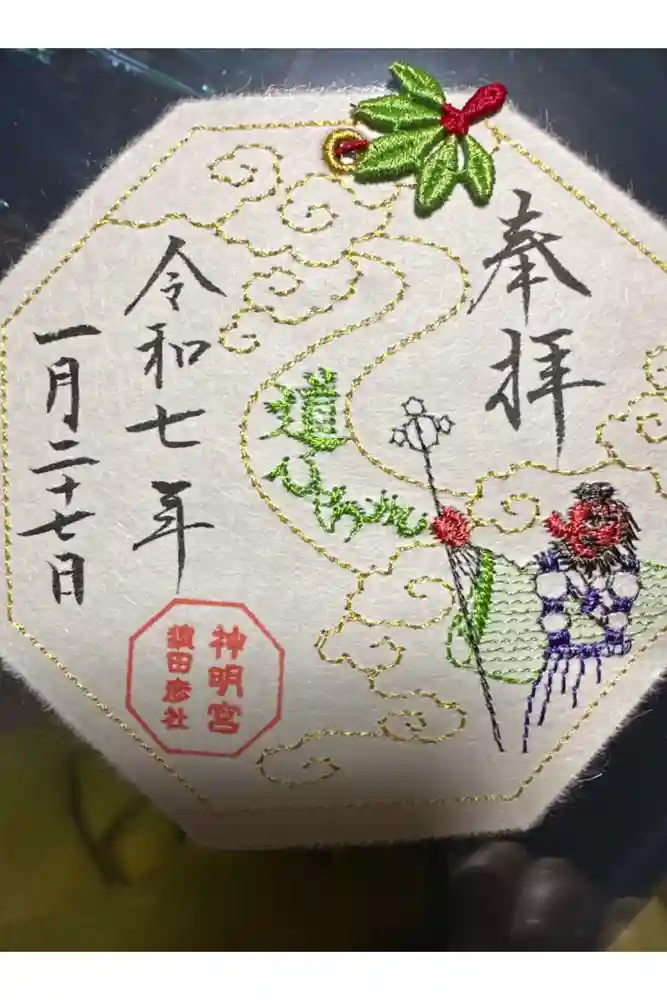 奉拝
道ひらき
令和七年
一月二十七日
神明宮
猿田彦社